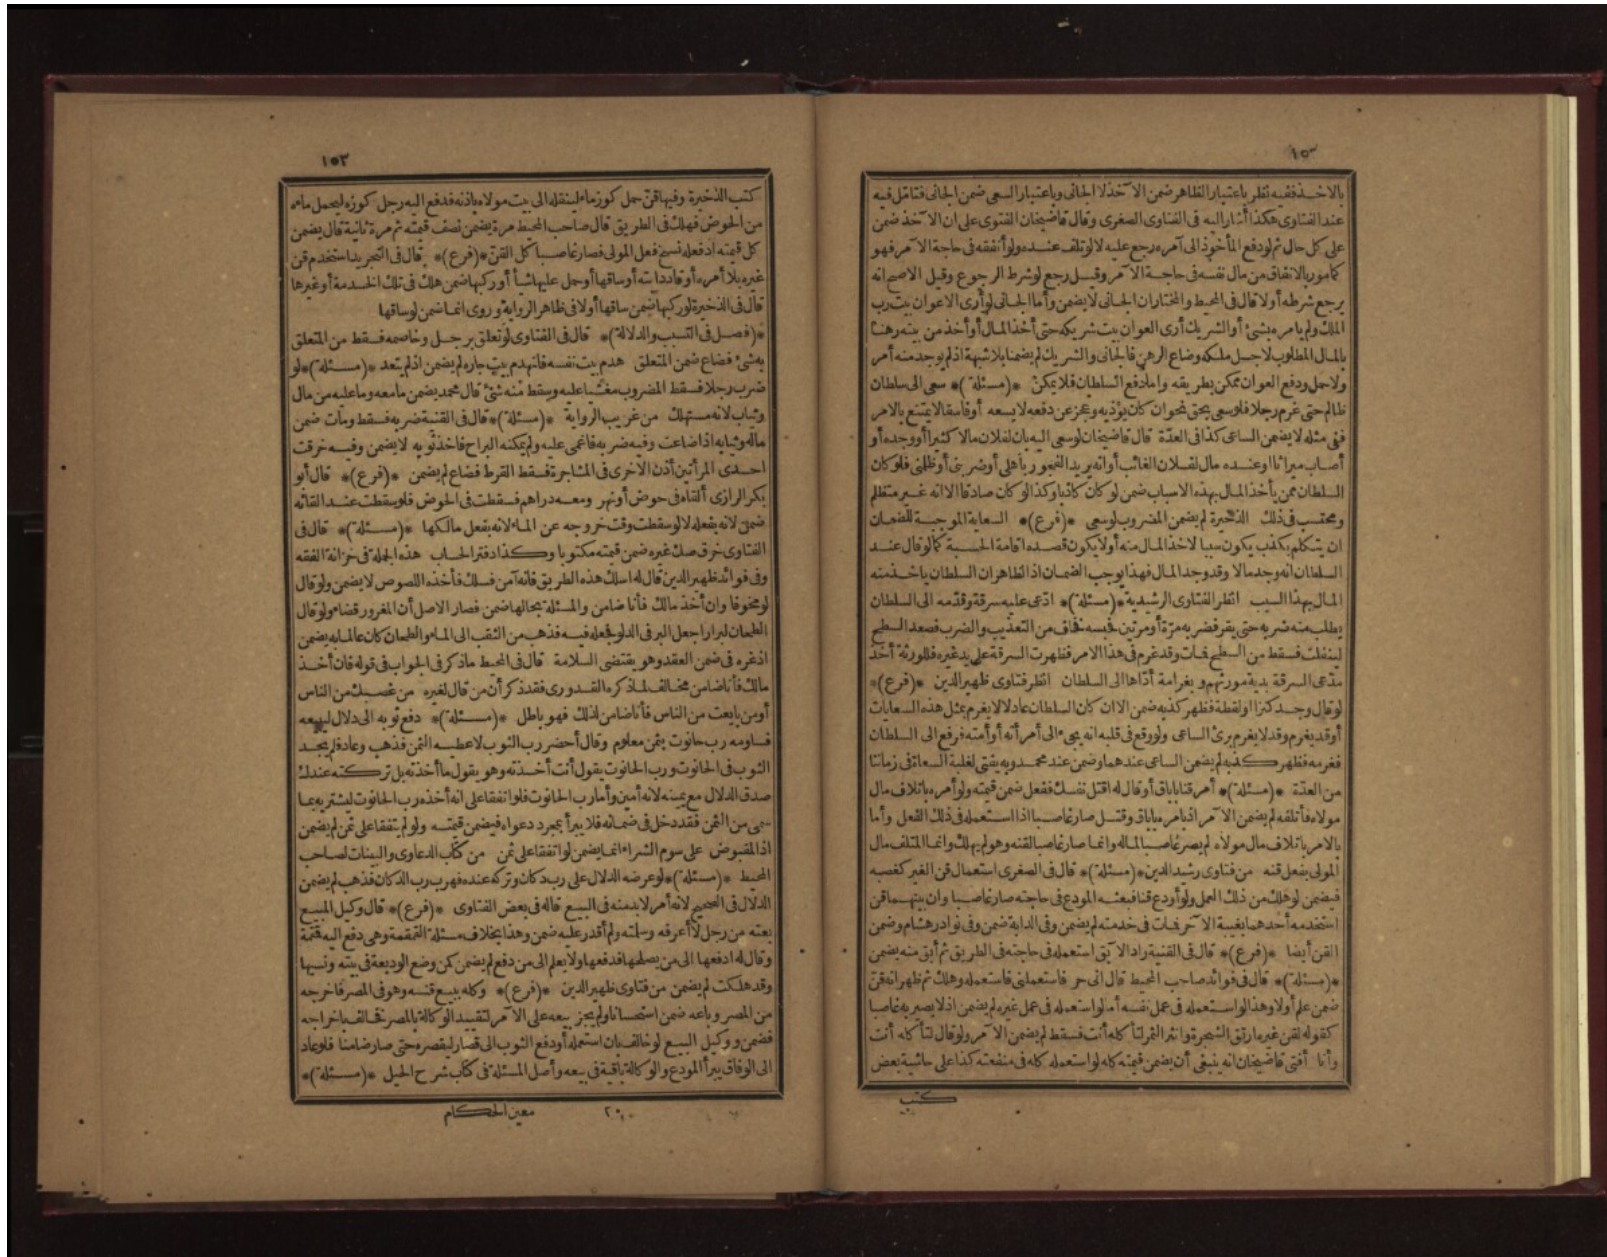 ١٥٢
بالاخذ ففيه نظر باعتبار الظاهر ضمن الآخذ لا الجانى وباعتبار السعى ضمن الجانى فتامّل فيه
عند الفتاوى هكذا أشار اليه فى الفتاوى الصغرى وقال قاضيخان الفتوى على ان الآخذ ضمن
على كل حال ثم لو دفع المأخوذ الى آمره رجع عليه لا لو تلف عنده ولو أنفقه فى حاجة الآمر فهو
كمأمور بالانفاق من مال نفسه فى حاجة الآمر وقيل رجع لو شرط الرجوع وقيل الاصح انه
يرجع شرطه أولا قال فى المحيط والمختار ان الجانى لا يضمن وأما الجانى لو أرى الاعوان بيت رب
الملك ولم يامره بشئ أو الشريك أرى العوان بيت شريكه حتى أخذ المال أو أخذ من بيته رهنا
بالمال المطلوب لاجل ملكه وضاع الرهن فالجانى والشريك لم يضمنا بلا شبهة اذ لم يوجد منه أمر
ولا حمل ودفع العوان ممكن بطريقه وأما دفع السلطان فلا يمكن *(مسئلة)* سعى الى سلطان
ظالم حتى غرم رجلا فلو سعى بحق نحو ان كان يؤذيه وعجز عن دفعه لا بسعيه أو فاسقا لا يمتنع بالامر
ففى مثله لا يضمن الساعى كذا فى العدّة قال قاضيخان لو سعى اليه بان لفلان مالا كثيرا أو وجده أو
أصاب ميراثا أو عنده مال لفلان الغائب أو انه يريد الفجور باهلى أو ضربنى أو ظلمنى فلو كان
السلطان ممن يأخذ المال بهذه الاسباب ضمن لو كان كاذبا وكذا لو كان صادقا الا انه غير متظلم
ومحتسب فى ذلك الذخيرة لم يضمن المضروب لو سعى *(فرع)* السعاية الموجبة للضمان
ان يتكلم بكذب يكون سببا لاخذ المال منه أولا يكون قصده اقامة الحسبة كما لو قال عند
السلطان انه وجد مالا وقد وجد المال فهذا يوجب الضمان اذ الظاهر ان السلطان ياخذ منه
المال بهذا السبب انظر الفتاوى الرشيدية *(مسئلة)* ادّعى عليه سرقة وقدّمه الى السلطان
يطلب منه ضربه حتى يقر فضربه مرّة أو مرتين فحبسه فخاف من التعذيب والضرب فصعد السطح
لينفلت فسقط من السطح فمات وقد غرم فى هذا الامر فظهرت السرقة على يد غيره فللورثة أخذ
مدّعى السرقة بدية مورثهم وبغرامة أدّاها الى السلطان انظر فتاوى ظهير الدين *(فرع)*
لو قال وجد كنزا أو لقطة فظهر كذبه ضمن الا ان كان السلطان عادلا لا يغرم بمثل هذه السعايات
أو قد يغرم وقد لا يغرم برئ الساعى ولو وقع فى قلبه انه يجىء الى أمرأته أو أمته فرفع الى السلطان
فغرمه فظهر كذبه لم يضمن الساعى عندهما وضمن عند محمد وبه يفتى لغلبة السعاة فى زماننا
من العدّة *(مسئلة)* أمر قنا باباق أو قال له اقتل نفسك ففعل ضمن قيمته ولو أمره باتلاف مال
مولاه فأتلفه لم يضمن الآمر اذ بامره باباق وقتل صار غاصبا اذا استعمله فى ذلك الفعل وأما
بالامر باتلاف مال مولاه لم يصر غاصبا لماله وانما صار غاصبا لقنه وهو لم يهلك وانما المتلف مال
المولى بفعل قنه من فتاوى رشيد الدين *(مسئلة)* قال فى الصغرى استعمال قن الغير كغصبه
فيضمن لو هلك من ذلك العمل ولو أودع قنا فبعثه المودع فى حاجته صار غاصبا وان بينهما قن
استخدمه أحدهما بغيبة الآخر فمات فى خدمته لم يضمن وفى الدابة ضمن وفى نوادر هشام وضمن
القن أيضا *(فرع)* قال فى القنية راد الآبق استعمله فى حاجته فى الطريق ثم أبق منه يضمن
*(مسئلة)* قال فى فوائد صاحب المحيط قال انى حر فاستعملنى فاستعمله وهلك ثم ظهر انه قنّ
ضمن علم أولا وهذا لو استعمله فى عمل نفسه أما لو استعمله فى عمل غيره لم يضمن اذ لا يصير به غاصبا
كقوله لقن غيره ارتق الشجرة وانثر الثمر لتأكله أنت فسقط لم يضمن الآمر ولو قال لتأكله أنت
وأنا أفتى قاضيخان انه ينبغى أن يضمن قيمته كله لو استعمله كله فى منفعته كذا على حاشية بعض
كتب
١٥٣
كتب الذخيرة وفيها قنّ حمل كوز ماء لينقله الى بيت مولاه باذنه فدفع اليه رجل كوزه ليحمل ماءه
من الحوض فهلك فى الطريق قال صاحب المحيط مرة يضمن نصف قيمته ثم مرة ثانية قال يضمن
كل قيمته اذ فعله نسخ فعل المولى فصار غاصبا كل القنّ *(فرع)* قال فى التجريد استخدم قن
غيره بلا أمره أو قاد دابته أو ساقها أو حمل عليها شيأ أو ركبها ضمن هلك فى تلك الخدمة أو غيرها
قال فى الذخيرة لو ركبها ضمن ساقها أولا فى ظاهر الرواية وروى انما ضمن لو ساقها
*(فصل فى التسبب والدلالة)* قال فى الفتاوى لو تعلق برجل وخاصمه فسقط من المتعلق
به شئ فضاع ضمن المتعلق هدم بيت نفسه فانهدم بيت جاره لم يضمن اذ لم يتعد *(مسئلة)* لو
ضرب رجلا فسقط المضروب مغشيا عليه وسقط منه شئ قال محمد يضمن ما معه وما عليه من مال
وثياب لانه مستهلك من غريب الرواية *(مسئلة)* قال فى القنية ضربه فسقط ومات ضمن
ماله وثيابه اذا ضاعت وفيه ضربه فاغمى عليه ولم يمكنه البراح فاخذ ثوبه لا يضمن وفيه خرقت
احدى المرأتين أذن الاخرى فى المشاجرة فسقط القرط فضاع لم يضمن *(فرع)* قال أبو
بكر الرازى ألقاه فى حوض أو نهر ومعه دراهم فسقطت فى الحوض فلو سقطت عند القائه
ضمن لانه بفعله لا لو سقطت وقت خروجه عن الماء لانه بفعل مالكها *(مسئلة)* قال فى
الفتاوى خرق صك غيره ضمن قيمته مكتوبا وكذا دفتر الحساب هذه الجملة فى خزانة الفقه
وفى فوائد ظهير الدين قال له اسلك هذه الطريق فانه آمن فسلك فأخذه اللصوص لا يضمن ولو قال
لو مخوفا وان أخذ مالك فأنا ضامن والمسئلة بحالها ضمن فصار الاصل أن المغرور قضاء ولو قال
الطحان لبرار اجعل البر فى الدلو فجعله فيه فذهب من الثقب الى الماء والطحان كان عالما به يضمن
اذ غره فى ضمن العقد وهو يقتضى السلامة قال فى المحيط ما ذكر فى الجواب فى قوله فان أخذ
مالك فأنا ضامن مخالف لما ذكره القدورى فقد ذكر أن من قال لغيره من غصبك من الناس
أو من بايعت من الناس فأنا ضامن لذلك فهو باطل *(مسئلة)* دفع ثوبه الى دلال ليبيعه
فساومه رب حانوت بثمن معلوم وقال أحضر رب الثوب لاعطيه الثمن فذهب وعاد فلم يجد
الثوب فى الحانوت ورب الحانوت يقول أنت أخذته وهو يقول ما أخذته بل تركته عندك
صدق الدلال مع يمينه لانه أمين وأما رب الحانوت فلو اتفقا على انه أخذه رب الحانوت ليشتريه بما
سمى من الثمن فقد دخل فى ضمانه فلا يبرأ بمجرد دعواه فيضمن قيمته ولو لم يتفقا على ثمن لم يضمن
اذ المقبوض على سوم الشراء انما يضمن لو اتفقا على ثمن من كتاب الدعاوى والبينات لصاحب
المحيط *(مسئلة)* لو عرضه الدلال على رب دكان وتركه عنده فهرب رب الدكان فذهب لم يضمن
الدلال فى الصحيح لانه أمر لا بد منه فى البيع قاله فى بعض الفتاوى *(فرع)* قال وكيل المبيع
بعته من رجل لا أعرفه وسلمته ولم أقدر عليه ضمن وهذا بخلاف مسئلة القمقمة وهى دفع اليه قمقمة
وقال له ادفعها الى من يصلحها فدفعها ولا يعلم الى من دفع لم يضمن كمن وضع الوديعة فى بيته ونسيها
وقد هلكت لم يضمن من فتاوى ظهير الدين *(فرع)* وكله ببيع قنه وهو فى المصر فاخرجه
من المصر وباعه ضمن استحسانا ولم يجز بيعه على الآمر لتقييد الوكالة بالمصر فخالف باخراجه
فضمن ووكيل البيع لو خالف بان استعمله أو دفع الثوب الى قصار ليقصره حتى صار ضامنا فلو عاد
الى الوفاق يبرأ كالمودع والوكالة باقية فى بيعه وأصل المسئلة فى كتاب شرح الحيل *(مسئلة)*
٢٠ معين الحكام